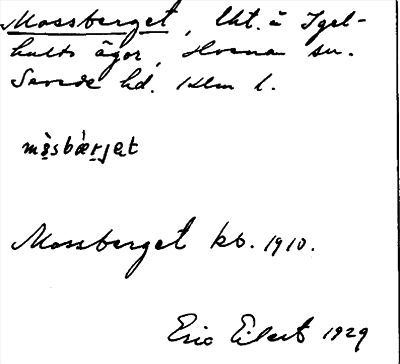 Mossberget, lht. å Igel-
hults ägor, Hvena sn.
Sevede hd. Klm l.
mɷ̀sbær̀jət
Mossberget kb. 1910.
Eric Eilert 1929